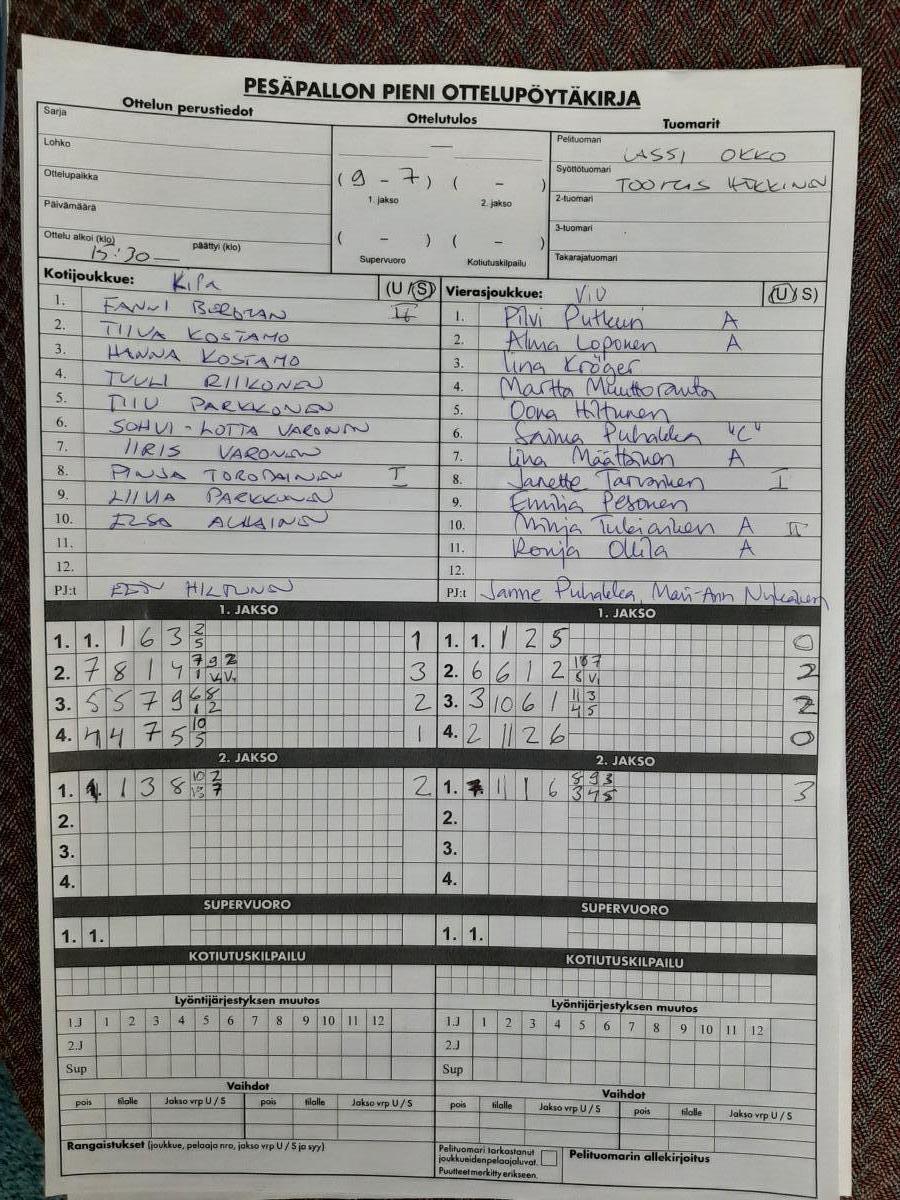 PESÄPALLON PIENI OTTELUPÖYTÄKIRJA
Ottelun perustiedot
Ottelutulos
Tuomarit
Sarja
Lohko
Ottelupaikka
Päivämäärä
Ottelu alkoi (klo) 15:30 päättyi (klo)
—
( 9 - 7 ) ( - )
1. jakso 2. jakso
( - ) ( - )
Supervuoro Kotiutuskilpailu
Pelituomari LASSI OKKO
Syöttötuomari
2-tuomari
3-tuomari
Takarajatuomari
Kotijoukkue: KiPa (U / S)
1. FANNI II
2. KOSTAMO
3. HANNA KOSTAMO
4. TUULI RIIKONEN
5. TIIU PARKKONEN
6. SOHVI-LOTTA VARONEN
7. IIRIS VARONEN
8. PINJA TOROPAINEN I
9. PARKKONEN
10.
11.
12.
PJ:t HILTUNEN
Vierasjoukkue: ViU (U / S)
1. Pilvi A
2. Alma Loponen A
3. Iina Kröger
4. Martta
5. Oona Hiltunen
6. Saima Puhakka "C"
7. Iina Määttänen A
8. Janette I
9. Emilia Pesonen
10. Minja A II
11. Ronja Ollila A
12.
PJ:t Janne Puhakka,
1. JAKSO
1. 1. 1 6 3 2 5 1
2. 7 8 1 4 3
3. 5 5 7 9 6 8 1 2 2
4. 4 4 7 5 10 5 1
2. JAKSO
1. 1 3 8 2
2.
3.
4.
SUPERVUORO
1. 1.
KOTIUTUSKILPAILU
Lyöntijärjestyksen muutos
1.J 1 2 3 4 5 6 7 8 9 10 11 12
2.J
Sup
Vaihdot
pois tilalle Jakso vrp U / S pois tilalle Jakso vrp U / S
Rangaistukset (joukkue, pelaaja nro, jakso vrp U / S ja syy)
1. JAKSO
1. 1. 1 2 5 0
2. 6 6 1 2 2
3. 3 10 6 1 11 3 4 5 2
4. 2 11 2 6 0
2. JAKSO
1. 11 1 6 8 9 3 3 4 5 3
2.
3.
4.
SUPERVUORO
1. 1.
KOTIUTUSKILPAILU
Lyöntijärjestyksen muutos
1.J 1 2 3 4 5 6 7 8 9 10 11 12
2.J
Sup
Vaihdot
pois tilalle Jakso vrp U / S pois tilalle Jakso vrp U / S
Pelituomari tarkastanut
joukkueidenpelaajaluvat.
Puutteet merkitty erikseen.
Pelituomarin allekirjoitus